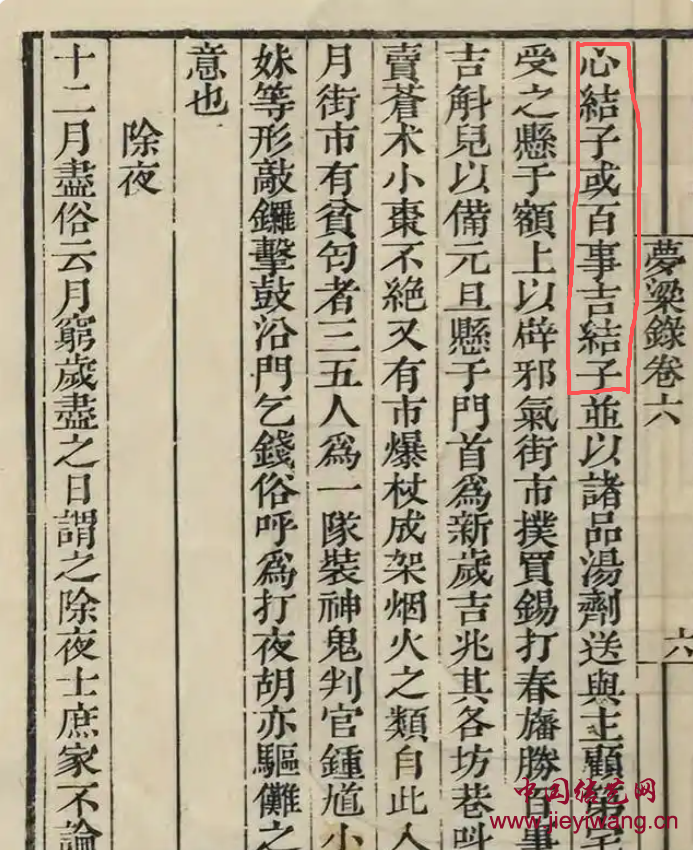 夢粱錄卷六
六
心結子或百事吉結子並以諸品湯劑送與主顧第
受之懸于額上以辟邪氣街市撲買錫打春旛勝百事
吉斛兒以備元旦懸于門首爲新歲吉兆其各坊巷呌
賣蒼术小棗不絕又有市爆杖成架烟火之類自此入
月街市有貧匄者三五人爲一隊裝神鬼判官鍾馗小
妹等形敲鑼擊鼓沿門乞錢俗呼爲打夜胡亦驅儺之
意也
除夜
十二月盡俗云月窮歲盡之日謂之除夜士庶家不論
中国结艺网
www.jieyiwang.cn